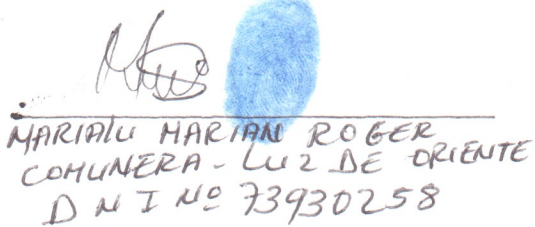 MARIALU MARIAN ROGER
COMUNERA - LUZ DE ORIENTE
DNI Nº 73930258